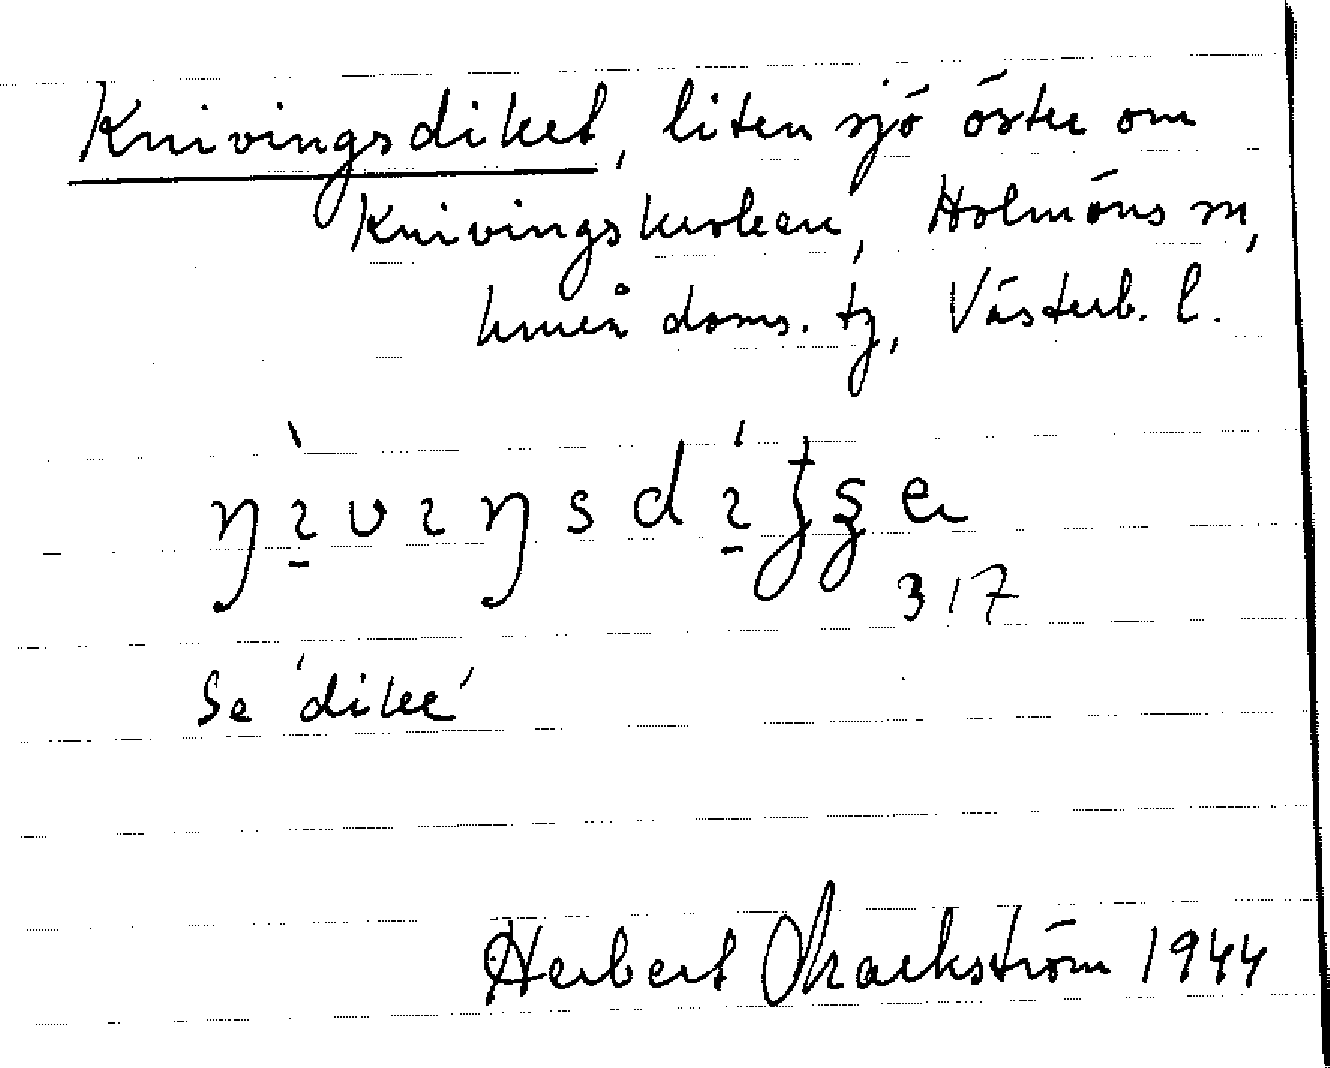 Knivingsdiket, liten sjö öster om
Knivingskroken, Holmöns sn,
Umeå doms. tg, Västerb. l.
317
Se 'dike'
Herbert Markström 1944